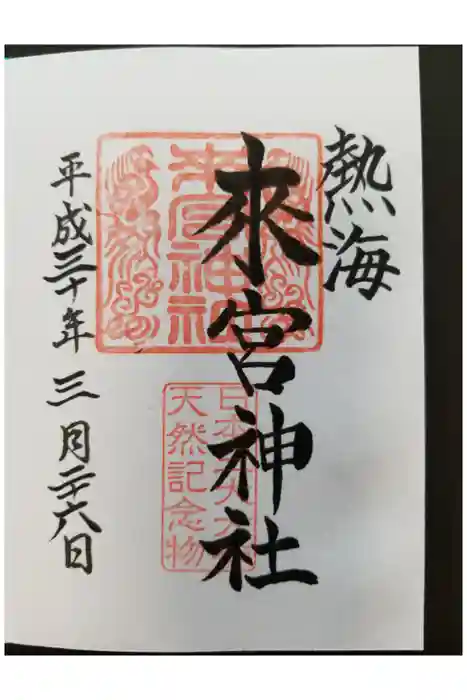 熱海
來宮神社
来宮神社
天然記念物
平成三十年三月二十六日